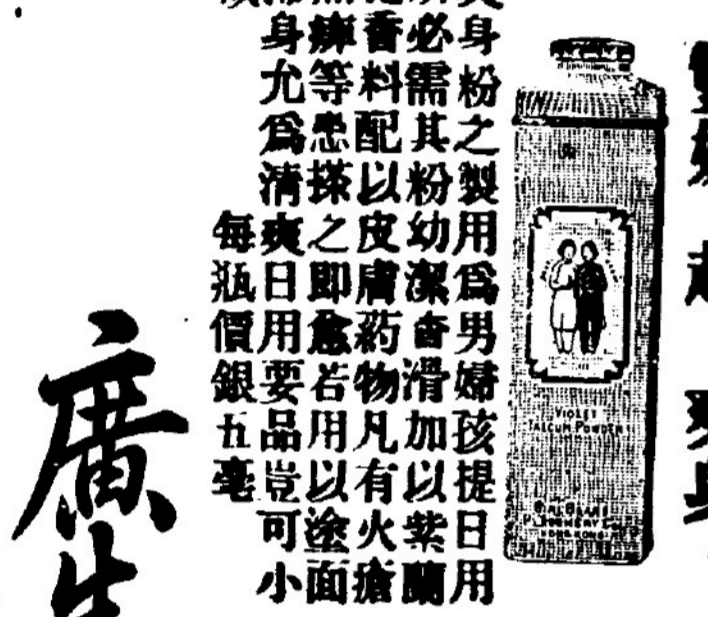 身粉之製用爲男婦孩提日用
必需其粉幼潔香滑加以紫蘭
香料配以皮膚葯物凡有火瘡
等患搽之即愈若用以塗面
身允爲清爽日用要品豈可小
每瓶價銀五毫
廣生
VIOLET
TALCUM POWDER
HONGKONG